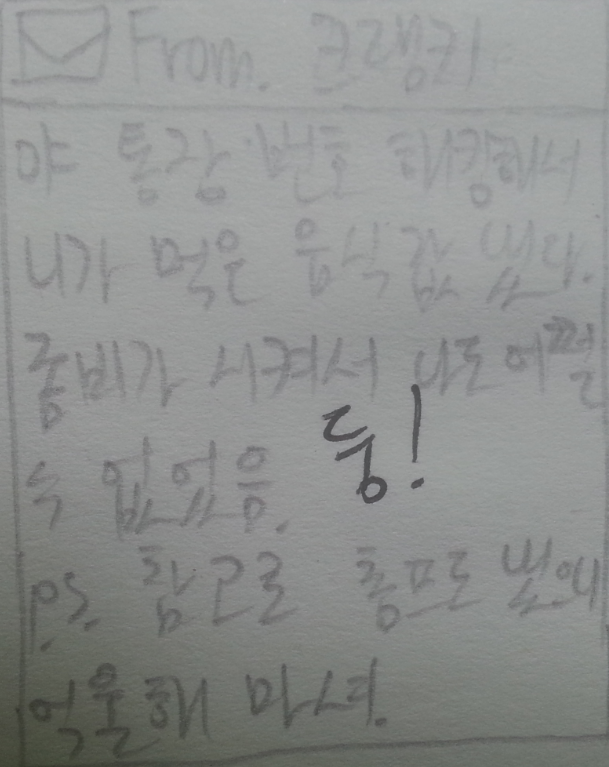 From. 크랭키
야 통장 번호 해킹해서
니가 먹은 음식값 썼다.
좀비가 시켜서 나도 어쩔
수 없었음. 둥!
p.s. 참고로 흥프도 썼으니
억울해 마셔.